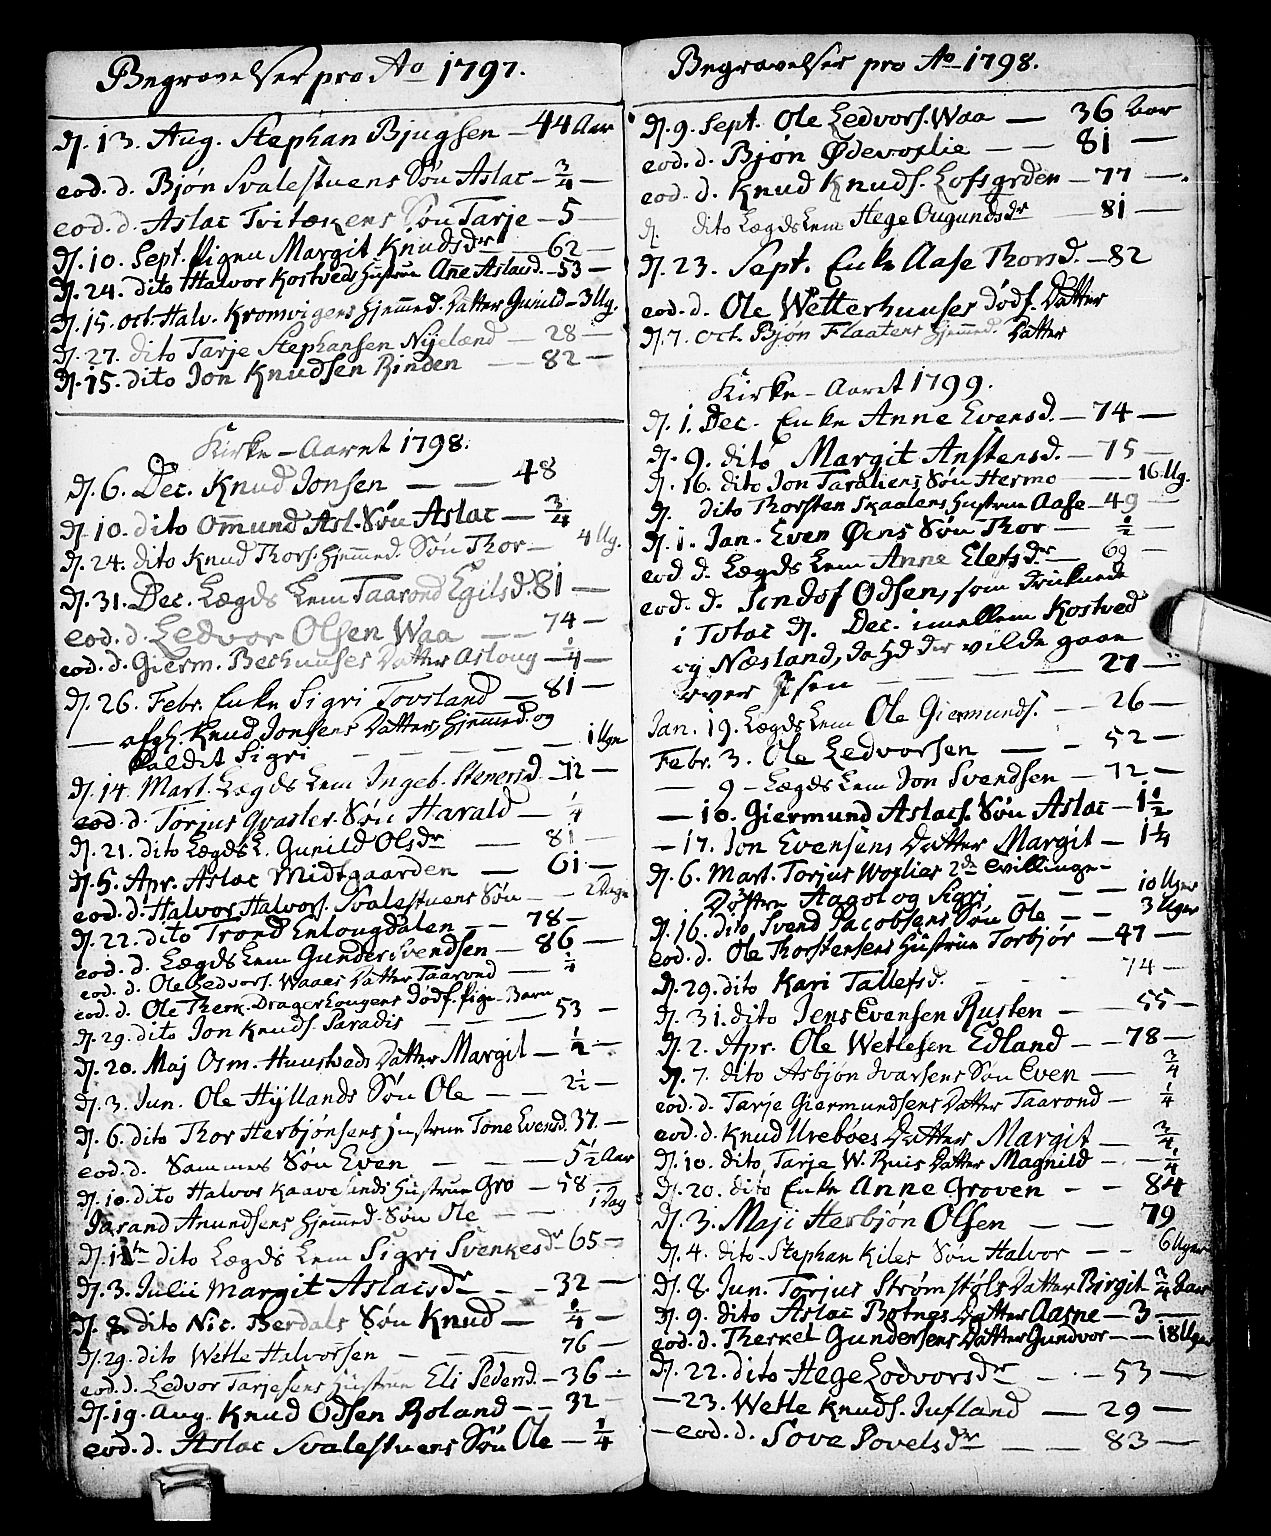 Begravelser pro Ao 1797.
D. 13. Aug. Stephan Bjugsen – 44 Aar
eod. d. Bjøn Svalestuens Søn Aslac – 3/4 –
eod. d. Aslac Tvitækens Søn Tarje – 5 –
D. 10. Sept. Pigen Margit Knudsdr – 62 –
D. 24. dito Halvor Kostveds Hustrue Ane Aslacsd. – 53 –
D. 15. oct. Halv. Kromvigens Hjemmed. Datter Gunild – 3 Ug.
D. 27. dito Tarje Stephansen Nijelænd – 28 –
D. 15. dito Jon Knudsen Rinden – 82 –
Kirke – Aaret 1798.
D. 6. Dec. Knud Jonsen – – 48
D. 10. dito Omund Asl. Søn Aslac – 3/4
D. 24. dito Knud Thors. Hjemmed. Søn Thor – 4 Ug.
D. 31. Dec. Lægds Lem Taarond Egilsd. 81 –
eod. d. Ledvor Olsen Waa – – 74 –
eod. d. Gierm. Berhuuses Datter Asloug – 1/4 –
D. 26. Febr. Enke Sigri Tovsland – 81 –
– afgl. Knud Jonsens Datter, Hjemmed. og
kaldet Sigri – – – – – 1 Uge
D. 14. Mart. Lægds Lem Ingeb. Stenersd. – 72 –
eod. d. Torjus Søn Harald – 1/4
D. 21. dito Lægds L. Gunild Olsdr – 81 –
D. 5. Apr. Aslac Midtgaarden – 61 –
eod. d. Halvor Halvors. Svalestuens Søn – 2 Dage
D. 22. dito Trond Enlougdalen – 78 –
eod. d. Lægds Lem Gunder Evendsen – 86 –
eod. d. Ole Ledvors. Waaes Datter Taarond – 1/4
eod. d. Ole Therk. Dragerhougens Dødf. Pige-Barn
D. 29. dito Jon Knuds. Paradis – – – 53 –
D. 20. Maj Osm. Huustveds Datter Margit – 1/2 –
D. 3. Jun. Ole Hyllands Søn Ole – – 2 1/2 –
D. 6. dito Thor Herbjønsens Hustrue Tone Evensd. 37. –
eod. d. Sammes Søn Even – – – 5 1/2 Aar
D. 10. dito Halvor Kaavelands Hustrue Gro – 58 –
Jarand Anundsens Hjemmed. Søn Ole – – 1 Dag
D. dito Lægds Lem Sigri Svenkesdr 65 –
D. 3. Julii Margit Aslacsdr – – 32 –
D. 8. dito Nic. Berdals Søn Knud – 1/4 –
D. 29. dito Wetle Halvorsen – – – 76 –
eod. d. Ledvor Tarjesens Hustrue Eli Pedersd. – 36 –
D. 19. Aug. Knud Odsen Roland – – 32 –
eod. d. Aslac Svalestuens Søn Ole – 1/4
Begravelser pro Ao 1798.
D. 9. Sept. Ole Ledvors. Waa – 36 Aar
eod. d. Bjøn Ødevoslie – – 81 –
eod. d. Knud Knuds. Lofsgrden – 77 –
D. dito Lægds Lem Hege Ougundsdr – 81 –
D. 23. Sept. Enke Aase Thorsd. – 82
eod. d. Ole Wetterhuuses Dødf. Datter
D. 7. oct. Bjøn Flaatens Hjemmed. Datter
Kirke – Aaret 1799.
D. 1. Dec. Enke Anne Evensd. – 74 –
D. 9. dito Margit Anstensd. – 75 –
D. 16. dito Jon Taraliens Søn Hermo – – 16 Ug.
D. dito Thorsten Skaalens Hustrue Aase – 49 –
D. 1. Jan. Even Øens Søn Thor – 1/2 –
eod. d. Lægds Lem Anne Elefsdr – 69 –
eod. d. Sondof Odsen, som druknede
i Totac D. Dec. imellem Kostved
og Næsland, da hd der vilde gaae
over Isen – – – – 27 –
Jan. 19. Lægds Lem Ole Giermunds. – – 26 –
Febr. 3. Ole Ledvorsen – – 52 –
– 9 – Lægds Lem Jon Svendsen – 72 –
– 10. Giermund Aslacs. Søn Aslac – 1 1/2
– 17. Jon Evensens Datter Margit – 1 1/4
D. 6. Mart. Torjus Woslies 2de tvillinge-
Døttre Aagot og Sigri, – – – 10 Uger
D. 16. dito, Svend Jacobsens Søn Ole – – 3 Uger
eod. d. Ole Thorstensens Hustrue Torbjør – 47 –
D. 29. dito Kari Tallefsd. – – 74 –
D. 31. dito Jens Evensen Rusten – – 55 –
D. 2. Apr. Ole Wetlesen Edland – – 78 –
D. 7. dito Asbjøn Ivarsens Søn Even – 3/4
eod. d. Tarje Giermundsens Datter Taarond – 1/4
eod. d. Knud Urebøes Datter Margit – 3/4
D. 10. dito Tarje W. Ruis Datter Magnild – – 1/4
D. 20. dito Enke Anne Groven – – 84
D. 3. Maji Herbjøn Olsen – – 79
D. 4. dito Stephan Kiles Søn Halvor – – 6 Uger
D. 8. Jun. Torjus Strømstøls Datter Birgit 3/4 Aar
D. 9. dito Aslac Botnes Datter Aasne – 3 –
eod. d. Therkel Gundersens Datter Gundvor – – 18 Uger
D. 22. dito Hege Ledvorsdr – – 53 –
– 23. Wetle Knuds. Jufland – 29 –
– eod. d. Tove Povelsdr – – 83 –